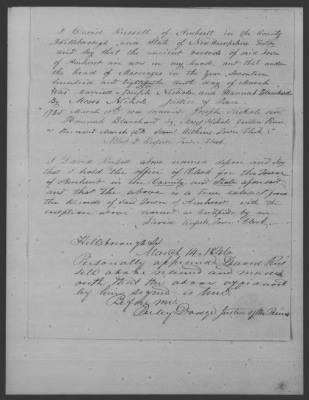 I David Russell of Amherst in the County
Hillsborough and State of New Hampshire
and say that the ancient records of
of Amherst are now in my hands, and that under
the head of Marriages in the year Seventeen
hundred and day of March
Was married Joseph Nichols and Hannah Blanchard
By Moses Nichols Justice of Peace
1785 March 10th was married Joseph Nichols and
Hannah Blanchard by Moses Nichols Justice Peace
Town Clerk
Town Clerk
I David Russell above named depose and say
that I hold the office of Clerk for the Town
of Amherst in the County and State aforesaid
and that the above is a true extract from
the Records of said Town of Amherst with the
exceptions above named as Certified by me
David Russell Town Clerk
Hillsborough Ss
March 14. 1846
Personally appeared David Russ
ell above named and made
oath that the above
by him signed is true
Before me
Perley Dodge Justice of the Peace